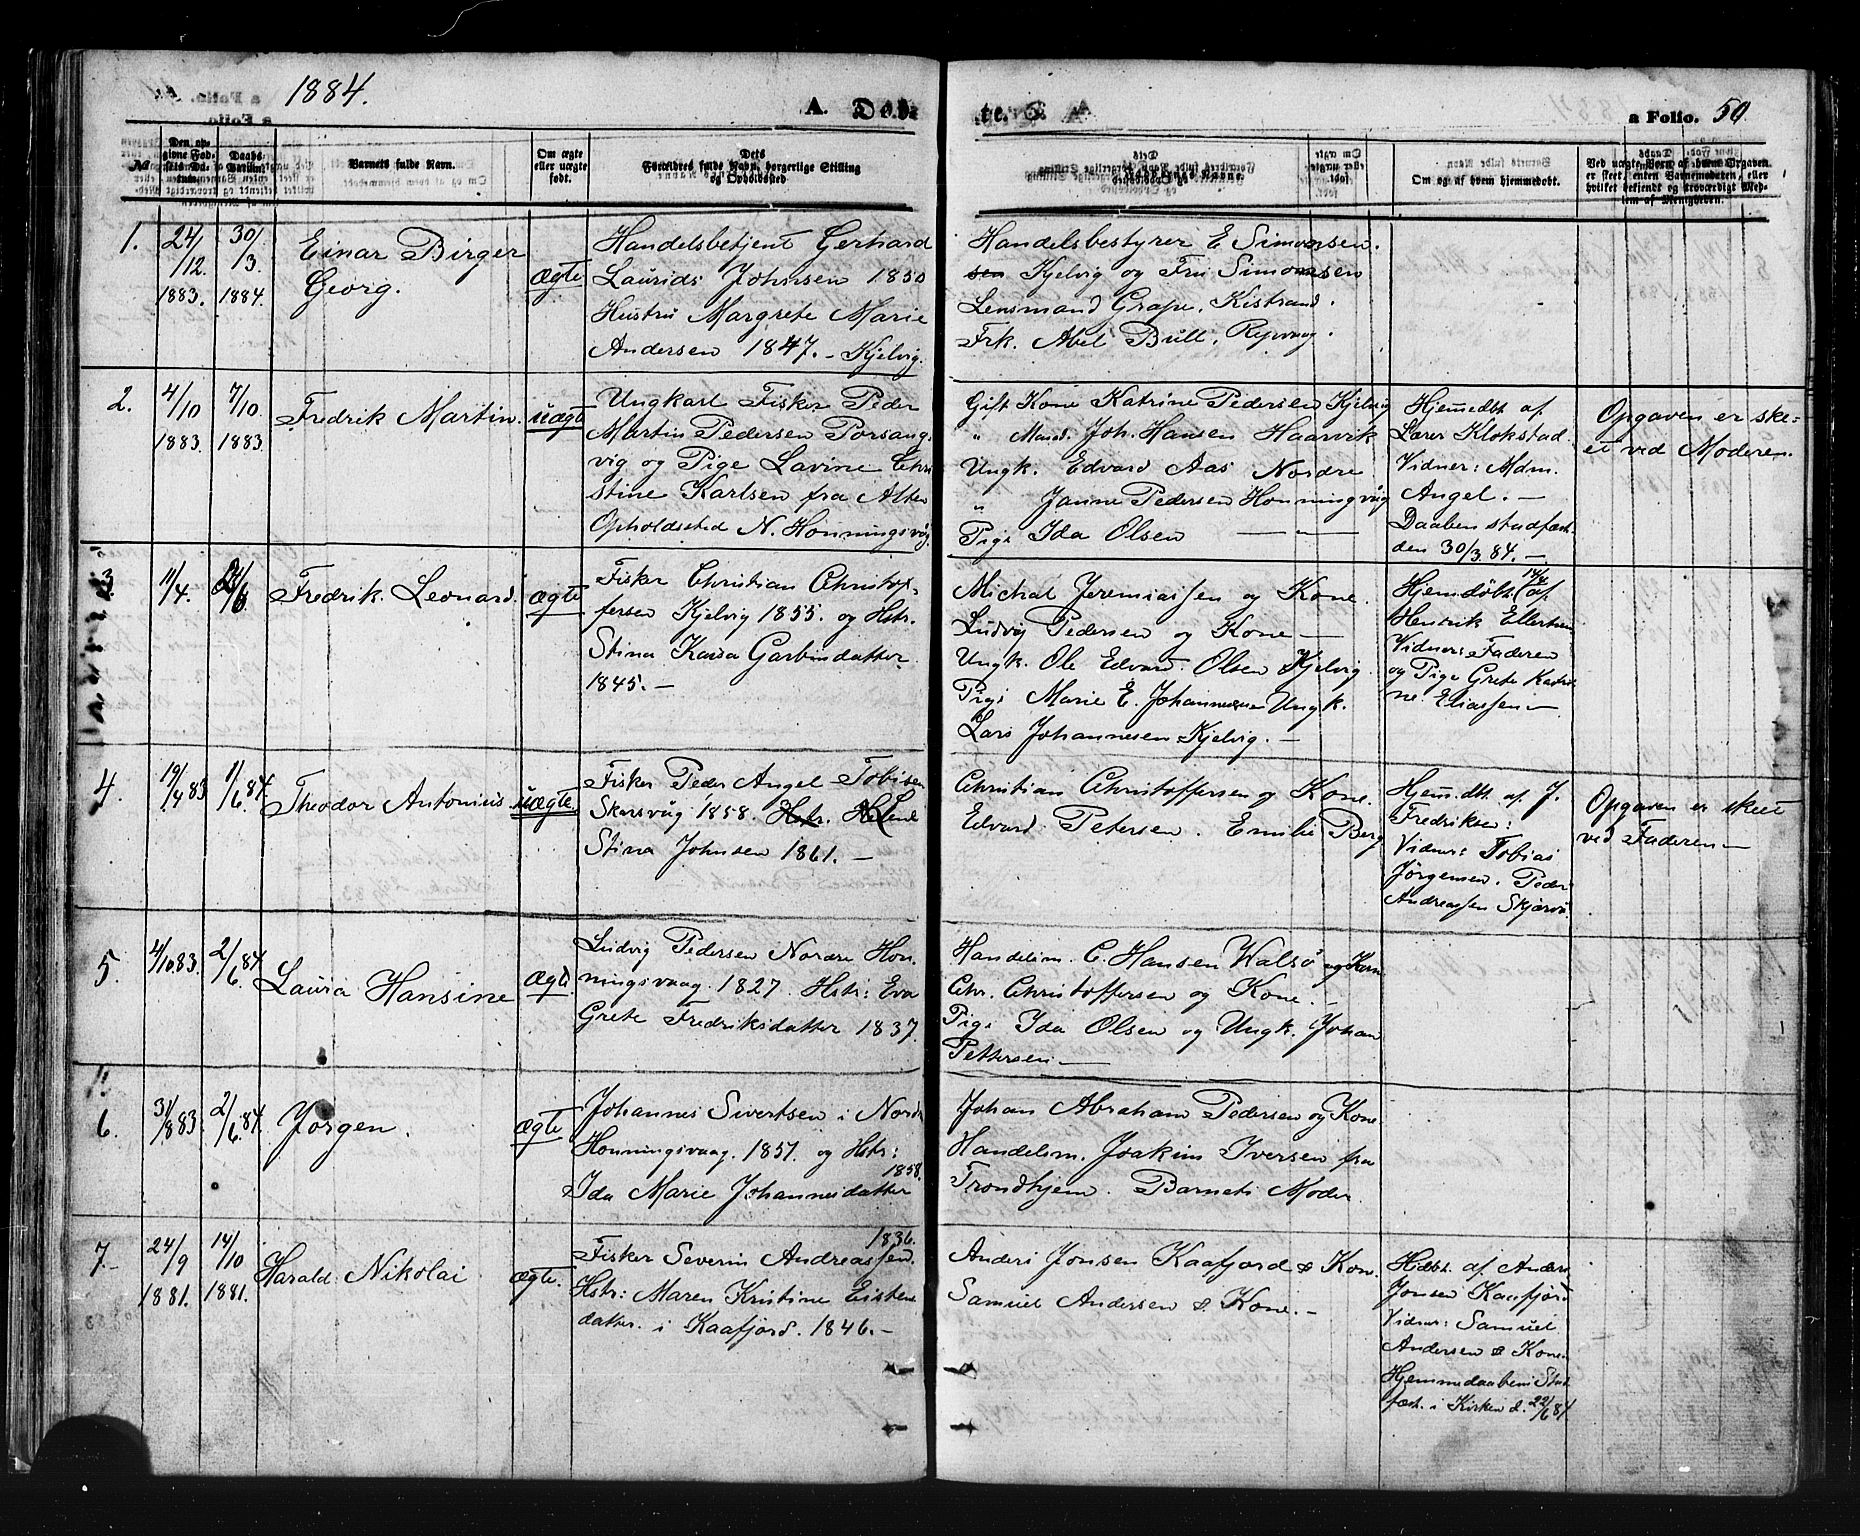 1884.
A. Døb-
te.
a Folio. 50
No
Den op-
givne Fød-
sels Da-
tum.
Daabs-
Datum.
Barnets fulde Navn.
Om ægte
eller uægte
født.
Dets
Forældres fulde Navn, borgerlige Stilling
og Opholdssted
Om og af hvem hjemmedøbt.
Ved uægte Børn af hvem Opgaven
er skeet, enten Barnemoderen, eller
hvilket bekjendt og troværdigt Med-
lem af Menigheden.
1.
24/12.
1883.
30/3.
1884.
Einar Birger
Georg.
Ægte
Handelsbetjent Gerhard
Laurids Johnsen 1850
Hustru Margrete Marie
Andersen 1847. - Kjelvig.
Handelsbestyrer E. Simonsen.
sen Kjelvig og Fru Simonsen
Lensmand Grape, Kistrand.
Frk. Abel Bull, Repvaag.
2.
4/10
1883.
7/10.
1883.
Fredrik Martin.
uægte
Ungkarl Fisker Peder
Martin Pedersen Porsang-
vig og Pige Lavine Chri
stine Karlsen fra Alten
Opholdssted N. Honningsvåg.
Gift Kone Katrine Pedersen Kjelvig
" Mand. Joh. Hansen Haarvik
Ungk. Edvard Aas Nordre
" Janne Pedersen Honningvåg
Pige Ida Olsen — " —
Hjemedbt af
Lærer Klokstad.
Vidner: Mdm.
Angel. -
Daaben stadfæst
den 30/3.84. -
Opgaven er ske-
et ved Moderen.
3
11/4.
2/6.
Fredrik Leonard.
ægte
Fisker Christian Christof-
fersen Kjelvig 1855. og Hstr.
Stina Kaisa Garbindatter
1845. -
Michal Jeremiassen og Kone.
Ludvig Pedersen og Kone -
Ungk. Ole Edvard Olsen Kjelvig
Pige Marie E. Johannesen Ungk.
Lars Johannesen Kjelvig. -
Hjemdøbt 14/4 af
Henrik Ellertsen
Vidner: Faderen
og Pige Grete Katri
ne Eliassen -
4.
19/4 83
1/6.84.
Theodor Antonius
uægte
Fisker Peder Angel Tobisen
Skarsvåg 1858. Hstr. Helene
Stina Johnsen 1861. -
Christian Christoffersen og Kone.
Edvard Petersen. Emilie Berg
Hjemdbt. af J.
Fredriksen:
Vidner: Tobias
Jørgensen. Peder
Andreassen Skjærvø.
Opgaven er skeet
ved Faderen -
5.
4/10 83.
2/6.84
Laura Hansine
ægte
Ludvig Pedersen Nordre Hon-
ningsvaag 1827. Hstr: Eva
Grete Fredriksdatter 1837.
Handelsm. C. Hansen Walsø og Kone
Chr. Christoffersen og Kone. -
Pige Ida Olsen og Ungk. Johan
Pettersen -
6.
31/8 83
2/6.84.
Jørgen.
ægte
Johannes Sivertsen i Nordr
Honningsvaag. 1857. og Hstr:
1858.
Ida Marie Johannesdatter
Johan Abraham Pedersen og Kone
Handelsm. Joakim Iversen fra
Trondhjem. Barnets Moder.
7.-
24/9
1881.
14/10
1881.
Harald Nikolai
ægte.
1836.
Fisker Severin Andreassen.
Hstr: Maren Kristine Eistens
datter. i Kaafjord. 1846. -
Anders Jonsen Kaafjord & Kon.
Samuel Andersen & Kone. -
Hidbt. af Anders
Jonsen Kaafjord
Vidner: Samuel
Andersen & Kone.
Hjemmedaabens Stad
fæst. i Kirken d. 22/6 84